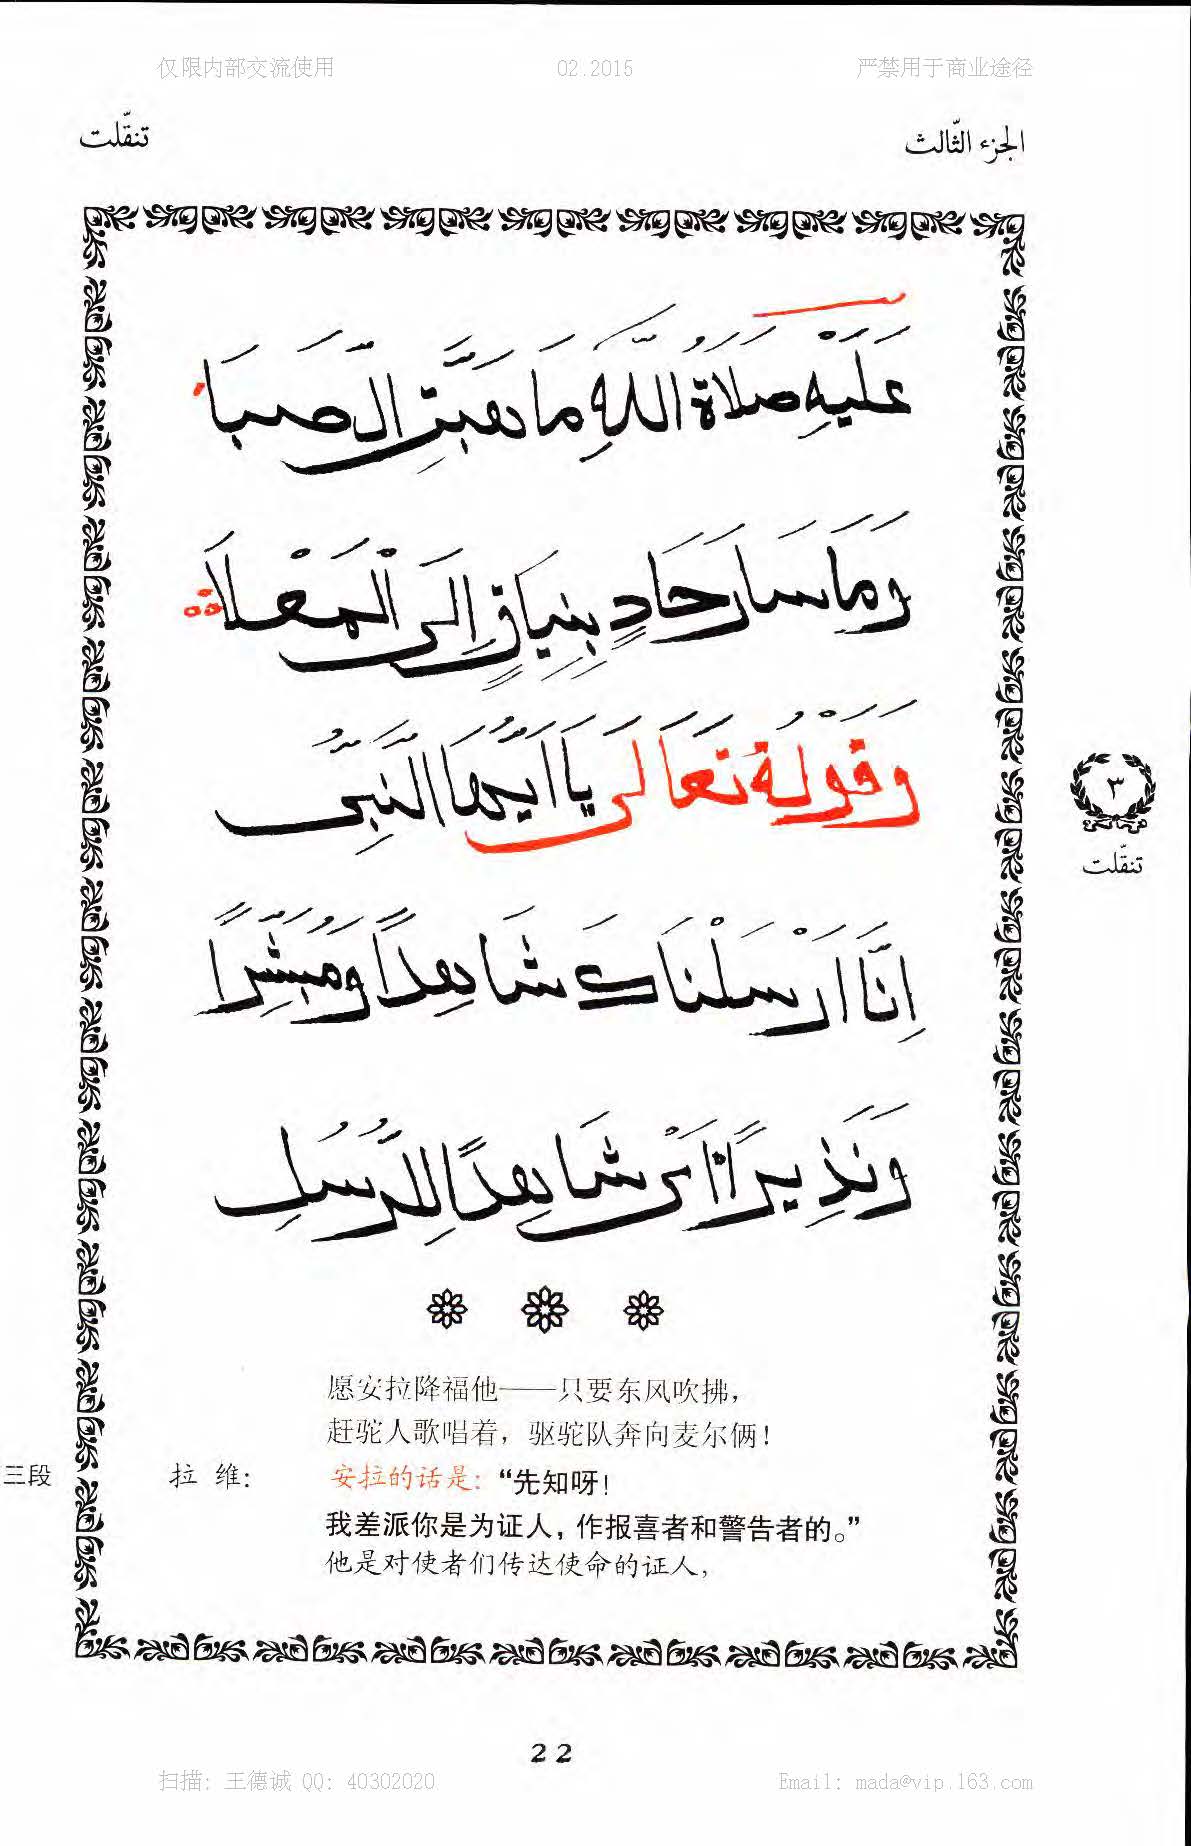 仅限内部交流使用 02.2015 严禁用于商业途径
الجزء الثّالث تنقّلت
عَلَيْهِ صَلَاةُ اللَّهِ مَا هَبَّتِ الصَّبَا
وَمَا سَارَ حَادٍ بِنِيَاقٍ اِلَى الْمَعْلَاةْ
وَقَوْلُهُ تَعَالَى يَا اَيُّهَا النَّبِىُّ
٣
تنقّلت
اِنَّا اَرْسَلْنَاكَ شَاهِدًا وَمُبَشِّرًا
وَنَذِيرًا اَىْ شَاهِدًا لِلرُّسُلِ
愿安拉降福他——只要东风吹拂，
赶驼人歌唱着，驱驼队奔向麦尔俩！
三段 拉 维： 安拉的话是：“先知呀！
我差派你是为证人，作报喜者和警告者的。”
他是对使者们传达使命的证人，
22
扫描: 王德诚 QQ: 40302020 Email: mada@vip.163.com